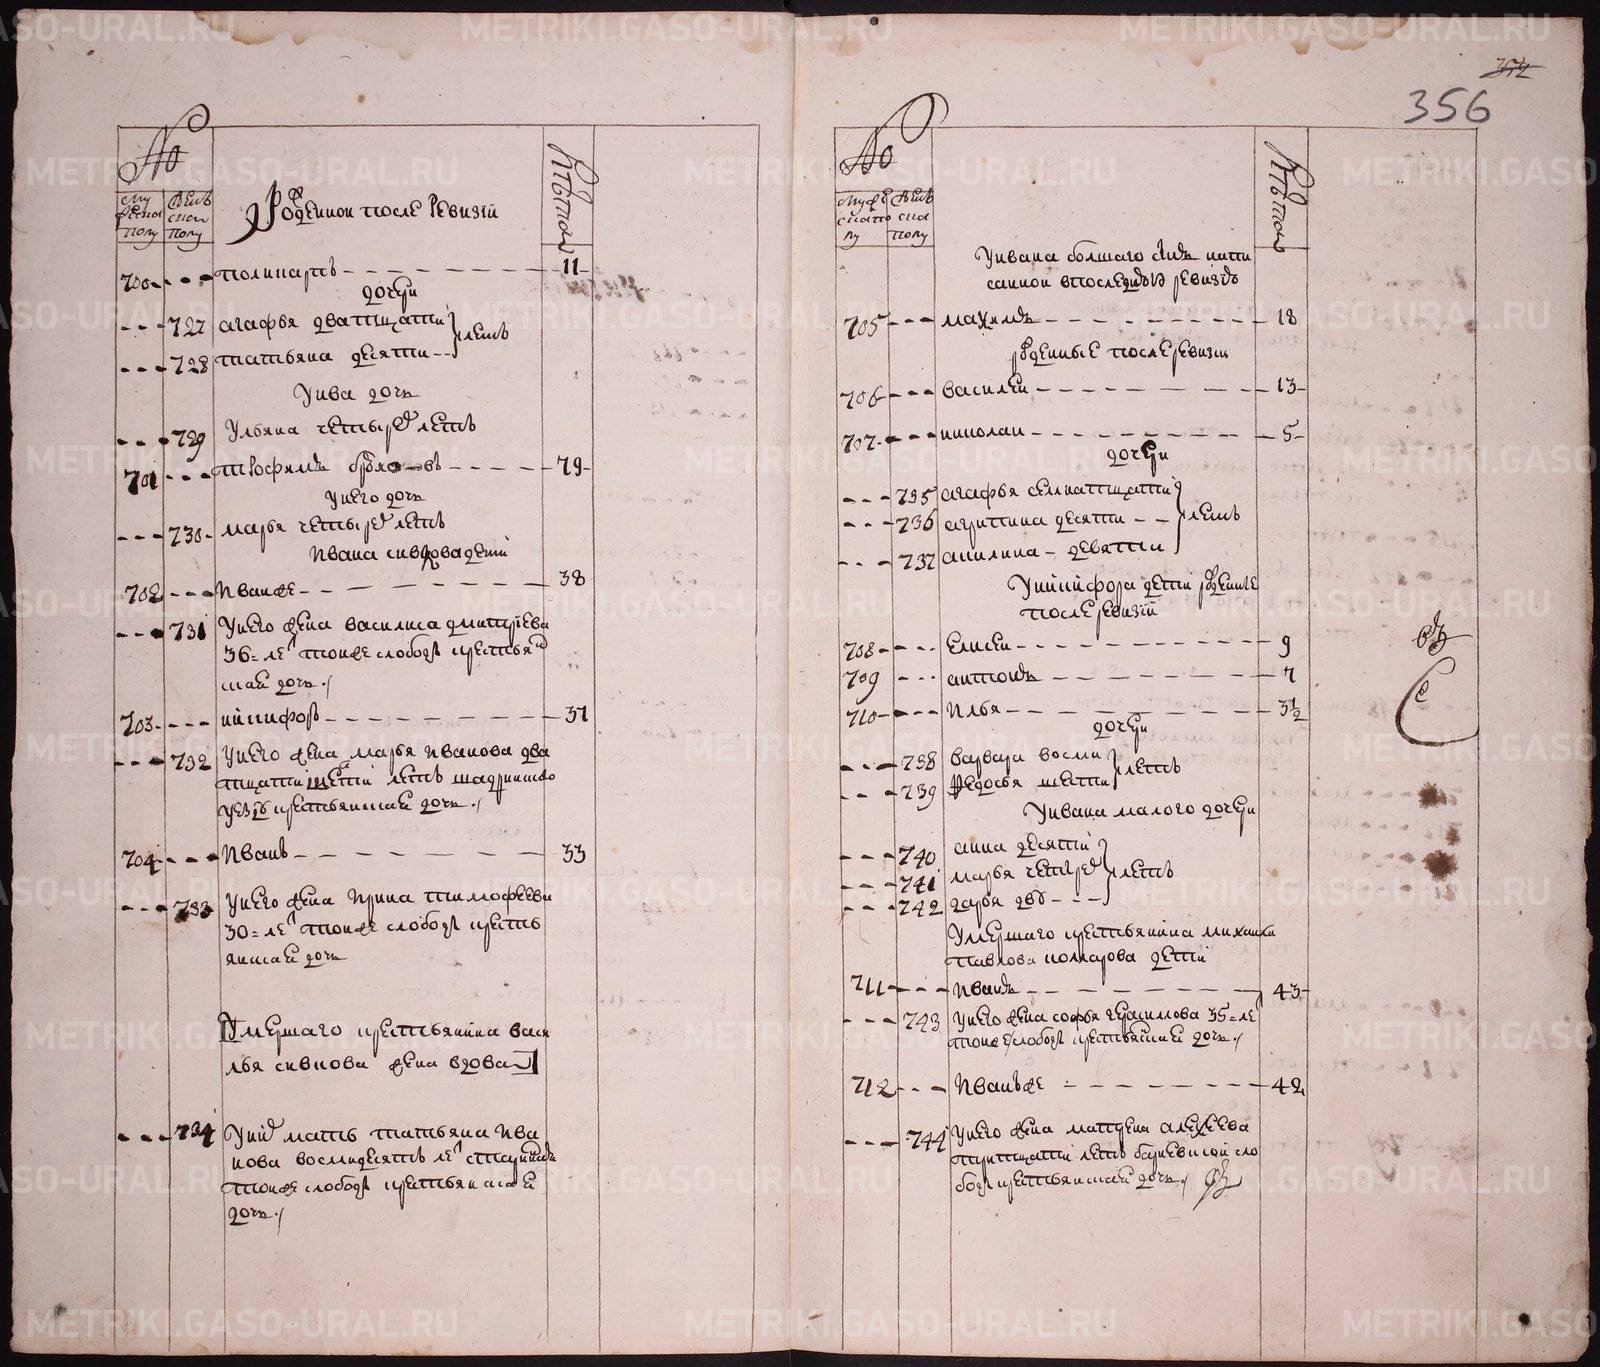 No
лѣта
му
женска
полу
женс
ска
полу
Рожденной после ревизiи
700 поликарпъ 11
дочери
727 агафья дватцати
728 татьяна десяти летъ
У ива дочь
729 Ульяна четырех летъ
701 трофимъ 79
У него дочь
730 марья четырех летъ
Ивана дети
702 Иван же 38
731 У него жена василиса дмитриева
36 ле той же слободы крестьян
ская дочь
703 никифоръ 37
732 У него жена марья иванова два
тцати шести летъ шадринского
уезду крестьянская дочь
704 Иванъ 33
733 У него жена Ирина тимофеева
30 ле той же слободы кресть
янская дочь
Умершаго крестьянина васи
лья жена вдова
734 У них мать татьяна ива
нова восмидесятъ ле
той же слободы крестьянская
дочь
354
356
No
лѣта
мужес
ска по
лу
женс
ска
полу
У ивана болшаго сынъ напи
санной в последней ревизiи
705 максимъ 18
рожденные после ревизiи
706 василей 13
707 николай 5
дочери
735 агафья семнатцати
736 агрипина десяти летъ
737 акилина девяти
У никифора дети рожденные
после ревизiи
708 елисей 9
709 антонъ 7
710 Илья 3 1/2
дочери
738 варвара восми летъ
739 федосья шести
У ивана малого дочери
740 анна десяти
741 марья четырех летъ
742 дарья дву
Умершаго крестьянина михаила
павлова комарова дети
711 Иванъ 43
743 У него жена софья герасимова 35 ле
той же слободы крестьянская дочь
712 Иванъ же 42
744 У него жена матрена алексеева
тритцати летъ барневской сло
боды крестьянская дочь